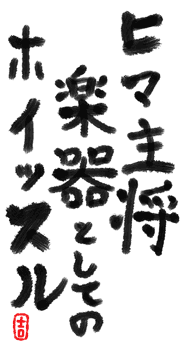 ヒマ主将
楽器としての
ホイッスル
吉